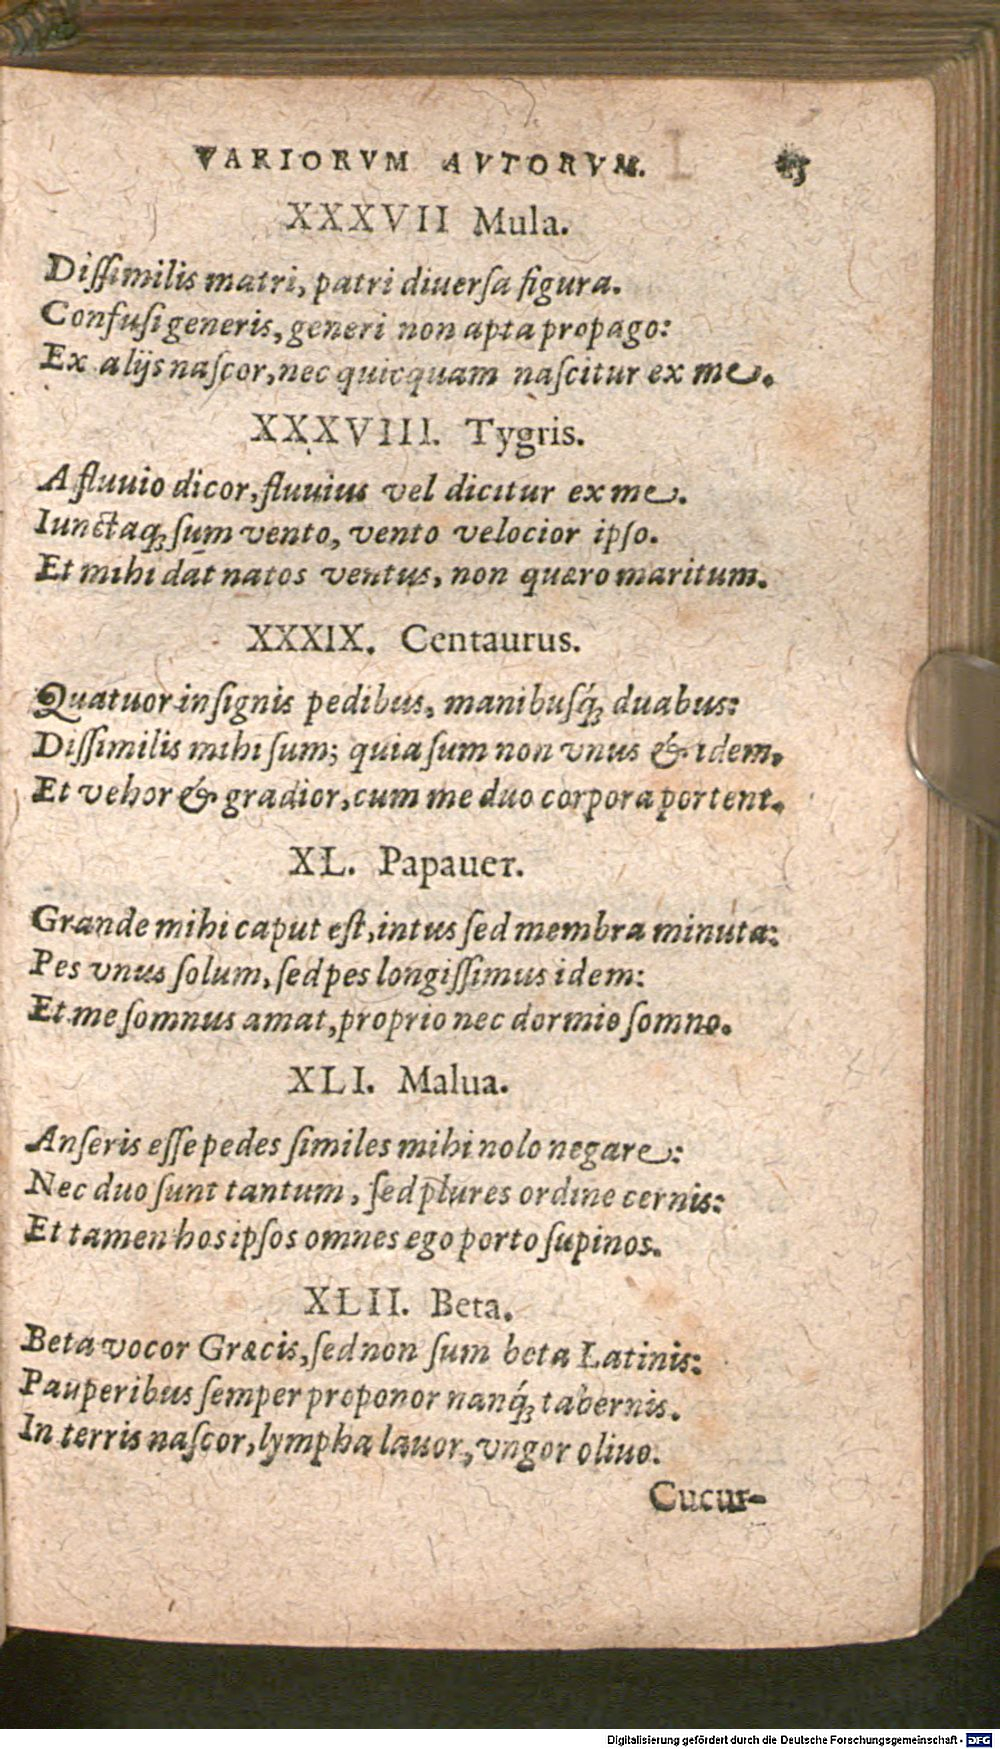 VARIORVM AVTORVM.
XXXVII Mula.
Diſſimilis matri, patri diuerſa figura.
Confuſi generis, generi non apta propago:
Ex alijs naſcor, nec quicquam naſcitur ex me.
XXXVIII. Tygris.
A fluuio dicor, fluuius vel dicitur ex me.
Iunctaq́; ſum vento, vento velocior ipſo.
Et mihi dāt natos ventus, non quæro maritum.
XXXIX. Centaurus.
Quatuor inſignis pedibus, manibuſq́; duabus:
Diſſimilis mihi ſum; quia ſum non vnus & idem.
Et vehor & gradior, cum me duo corpora portent.
XL. Papauer.
Grande mihi caput eſt, intus ſed membra minuta:
Pes vnus ſolum, ſed pes longiſſimus idem:
Et me ſomnus amat, proprio nec dormio ſomno.
XLI. Malua.
Anſeris eſſe pedes ſimiles mihi nolo negare:
Nec duo ſunt tantum, ſed plures ordine cernis:
Et tamen hos ipſos omnes ego porto ſupinos.
XLII. Beta.
Beta vocor Græcis, ſed non ſum beta Latinis:
Pauperibus ſemper proponor nanq́; tabernis.
In terris naſcor, lympha lauor, vngor oliuo.
Cucur-
Digitalisierung gefördert durch die Deutsche Forschungsgemeinschaft - DFG